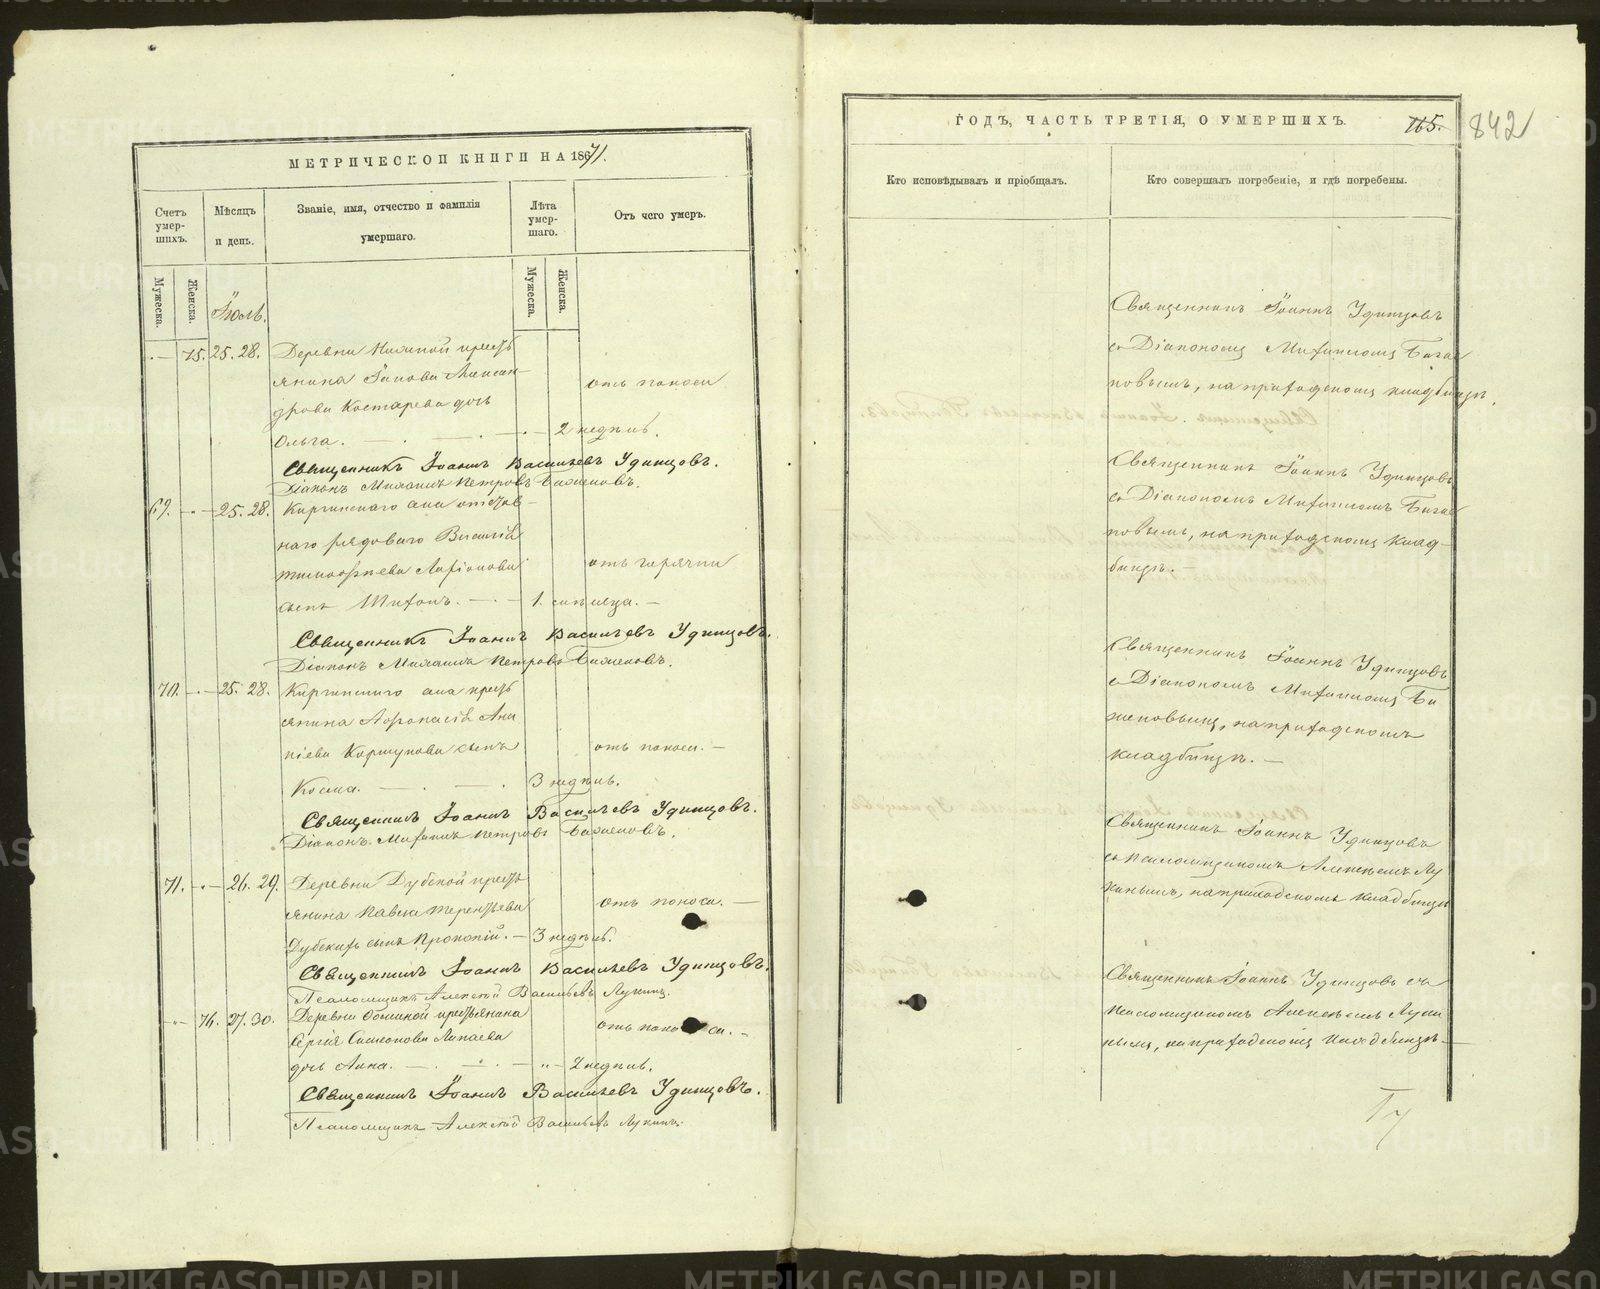 МЕТРИЧЕСКОЙ КНИГИ НА 1871.
Счетъ умер-
шихъ.
Мѣсяцъ
и день.
Званіе, имя, отчество и фамилія
умершаго.
Лѣта
умер-
шаго.
Отъ чего умеръ.
Мужеска.
Женска.
Мужеска.
Женска.
Іюль.
75. 25. 28. Деревни Нижной кресть
янина Іакова Алексан-
дрова Костарева дочь
отъ поноса
Ольга. — 2 недѣль.
Священникъ Іоаннъ Васильевъ Удинцовъ.
Діаконъ Михаилъ Петровъ Баженовъ.
69. 25. 28. Киргинскаго села отстав-
наго рядоваго Василія
Тимофѣева Ларіонова
отъ горячки
сынъ Тихонъ. — 1.
Священникъ Іоаннъ Васильевъ Удинцовъ.
Діаконъ Михаилъ Петровъ Баженовъ.
70. 25. 28. Киргинскаго села кресть
янина Афонасія Ана
ніева Коршунова сынъ
отъ поноса. —
Косма. — 3 недѣль.
Священникъ Іоаннъ Васильевъ Удинцовъ.
Діаконъ Михаилъ Петровъ Баженовъ.
71. 26. 29. Деревни Дубской кресть
янина Павла Терентьева
отъ поноса. —
Дубскихъ сынъ Прокопій. — 3 недѣль.
Священникъ Іоаннъ Васильевъ Удинцовъ.
Псаломщикъ Алексѣй Васильевъ Лукинъ.
76. 27. 30. Деревни крестьянина
Сергія Симеонова
отъ поноса. —
дочь Анна. — 2 недѣль.
Священникъ Іоаннъ Васильевъ Удинцовъ.
Псаломщикъ Алексѣй Васильевъ Лукинъ.
ГОДЪ, ЧАСТЬ ТРЕТІЯ, О УМЕРШИХЪ.
165.
842
Кто исповѣдывалъ и пріобщалъ.
Кто совершалъ погребеніе, и гдѣ погребены.
Священникъ Іоаннъ Удинцовъ
съ Діакономъ Михаиломъ Баже
новымъ, на приходскомъ кладбищѣ.
Священникъ Іоаннъ Удинцовъ
съ Діакономъ Михаиломъ Баже
новымъ, на приходскомъ клад-
бищѣ. —
Священникъ Іоаннъ Удинцовъ
съ Діакономъ Михаиломъ Ба
женовымъ, на приходскомъ
кладбищѣ. —
Священникъ Іоаннъ Удинцовъ
съ Псаломщикомъ Алексѣемъ Лу
кинымъ, на приходскомъ кладбищѣ
Священникъ Іоаннъ Удинцовъ съ
Псаломщикомъ Алексѣемъ Луки
нымъ, на приходскомъ кладбищѣ —
METRIKI.GASO-URAL.RU